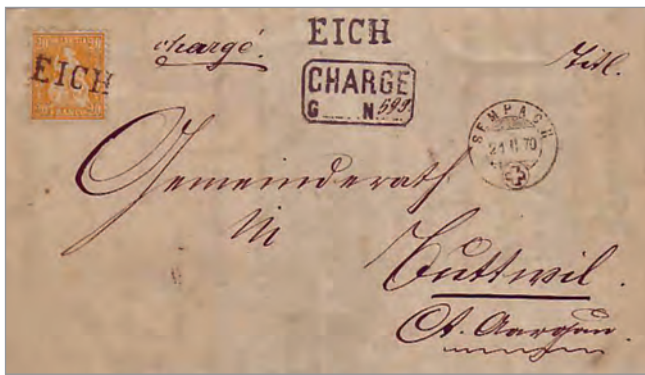 EICH
chargé.
EICH
CHARGE
G N 599
Titl.
SEMPACH
21 II 70
Gemeinderath
in
Buttwil.
Ct. Aargau.
FRANCO
20 20